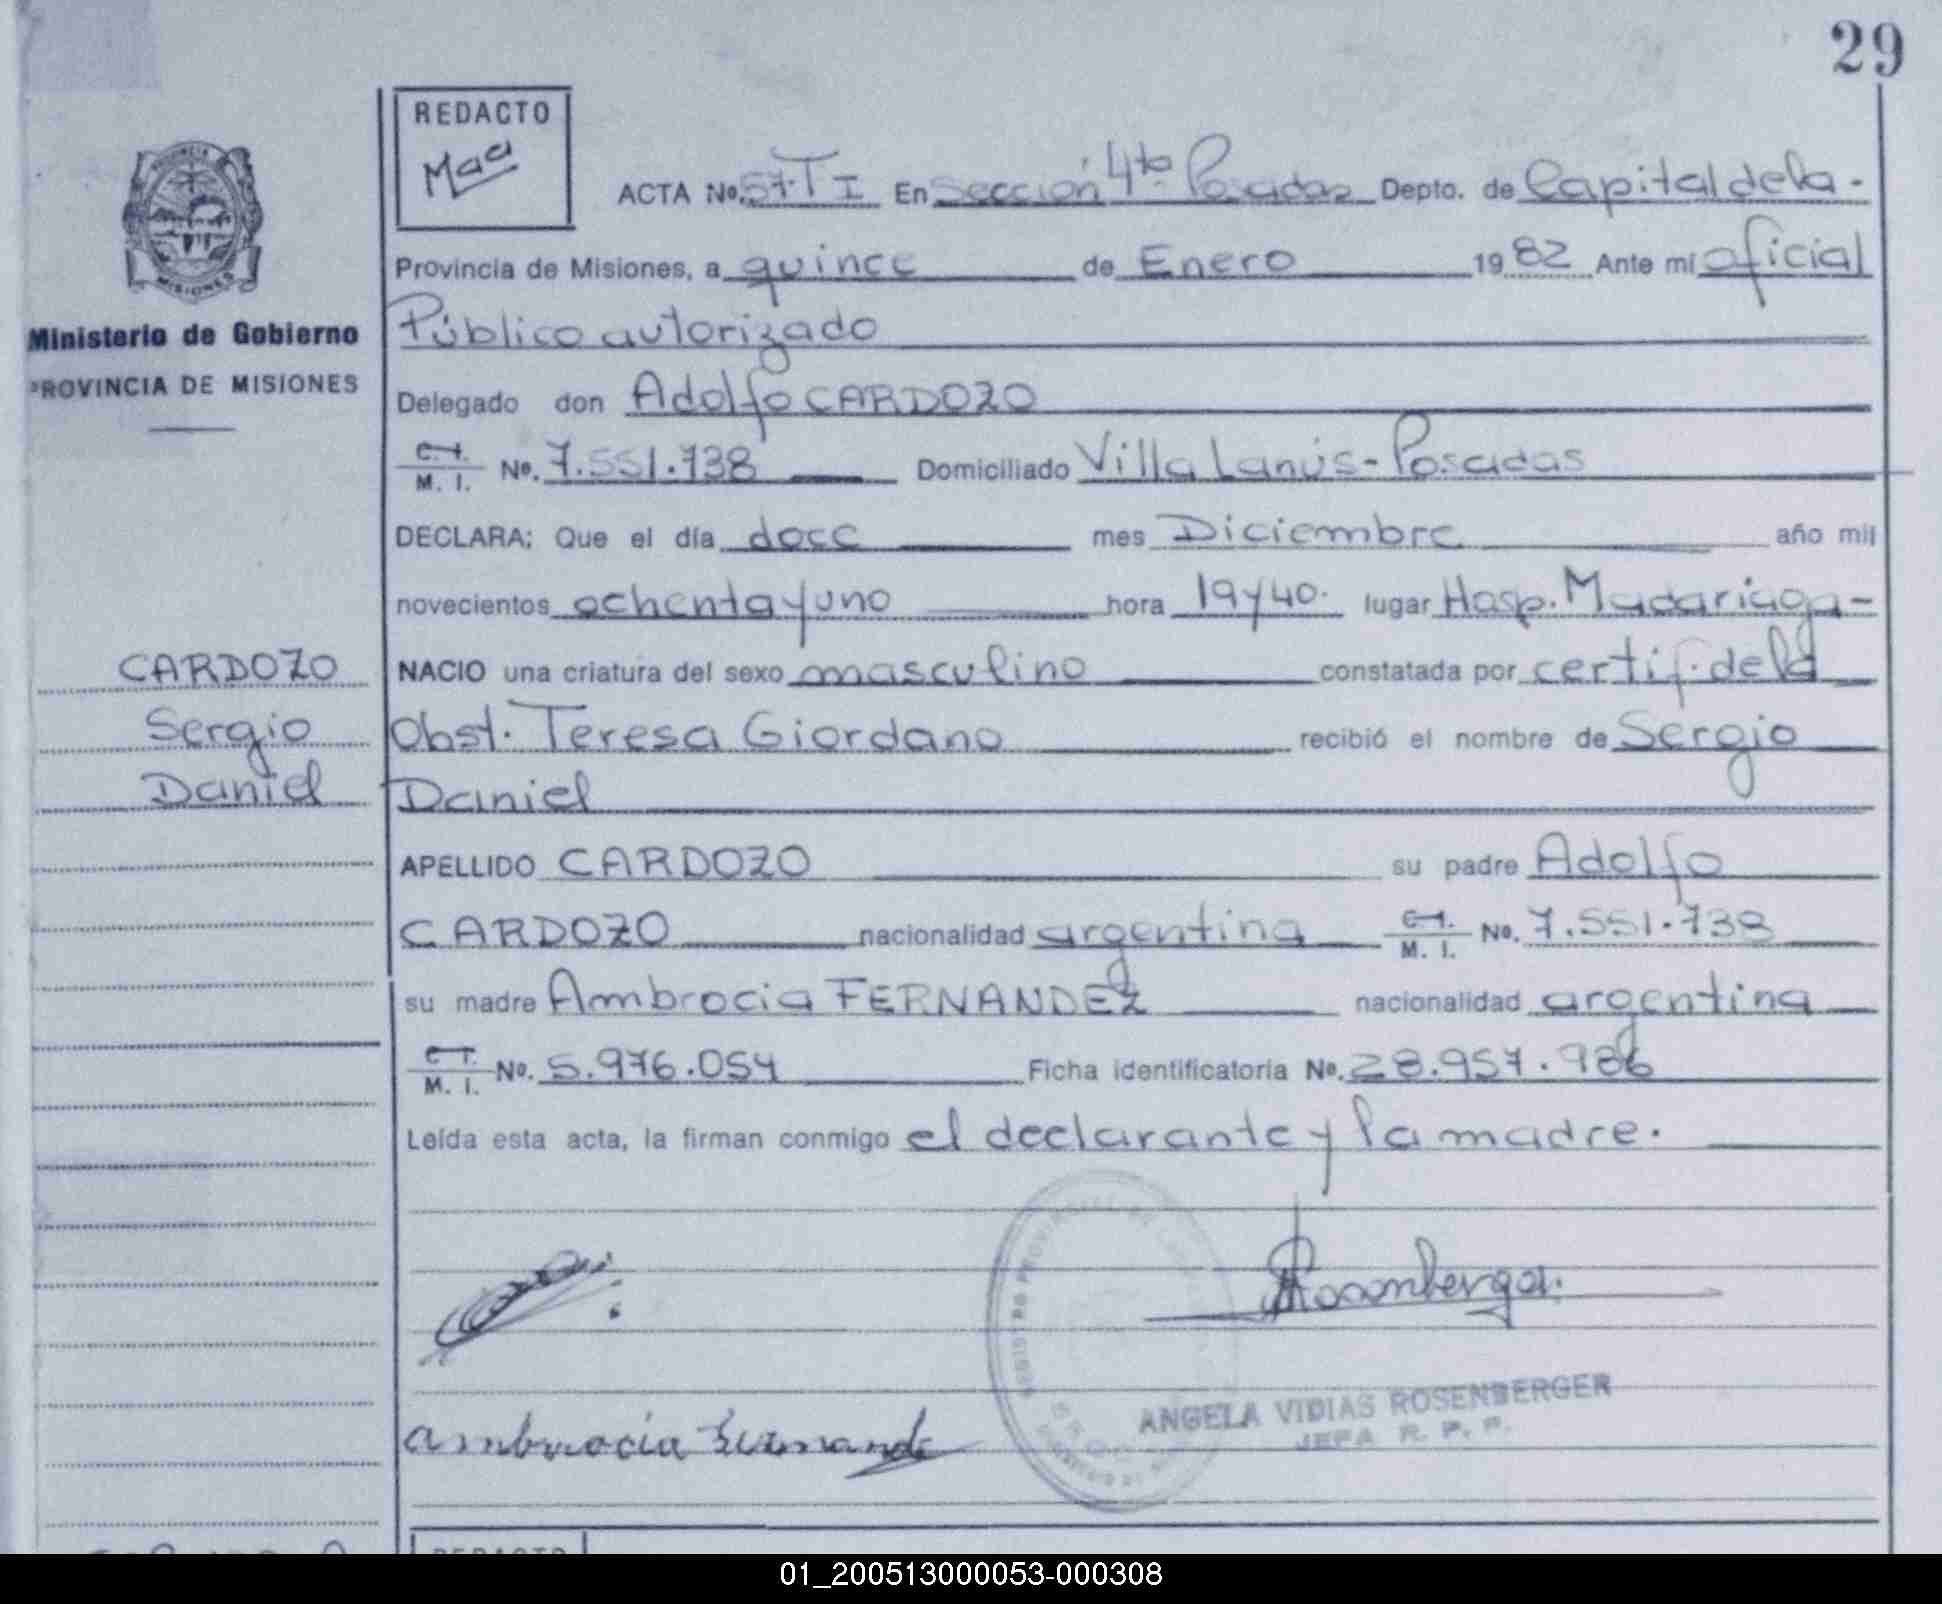 29
REDACTO
Maa
PROVINCIA
MISIONES
Ministerio de Gobierno
PROVINCIA DE MISIONES
ACTA No. 57-T I En Sección 4ta Posadas Depto. de Capital de la -
Provincia de Misiones, a quince de Enero 1982 Ante mí oficial
Público autorizado
Delegado don Adolfo CARDOZO
C. I. M. I. No. 7.551.738 Domiciliado Villa Lanús - Posadas
DECLARA: Que el día doce mes Diciembre año mil
novecientos ochenta y uno hora 19 y 40. lugar Hosp. Madariaga -
NACIO una criatura del sexo masculino constatada por certif. de la
Obst. Teresa Giordano recibió el nombre de Sergio
Daniel
CARDOZO
Sergio
Daniel
APELLIDO CARDOZO su padre Adolfo
CARDOZO nacionalidad argentina C. I. M. I. No. 7.551.738
su madre Ambrocia FERNANDEZ nacionalidad argentina
C. I. M. I. No. 5.976.054 Ficha identificatoria No. 28.957.986
Leída esta acta, la firman conmigo el declarante y la madre.
Rosenberger
ANGELA VIDIAS ROSENBERGER
JEFA R. P. P.
ambrocia fernande
REDACTO
01_200513000053-000308